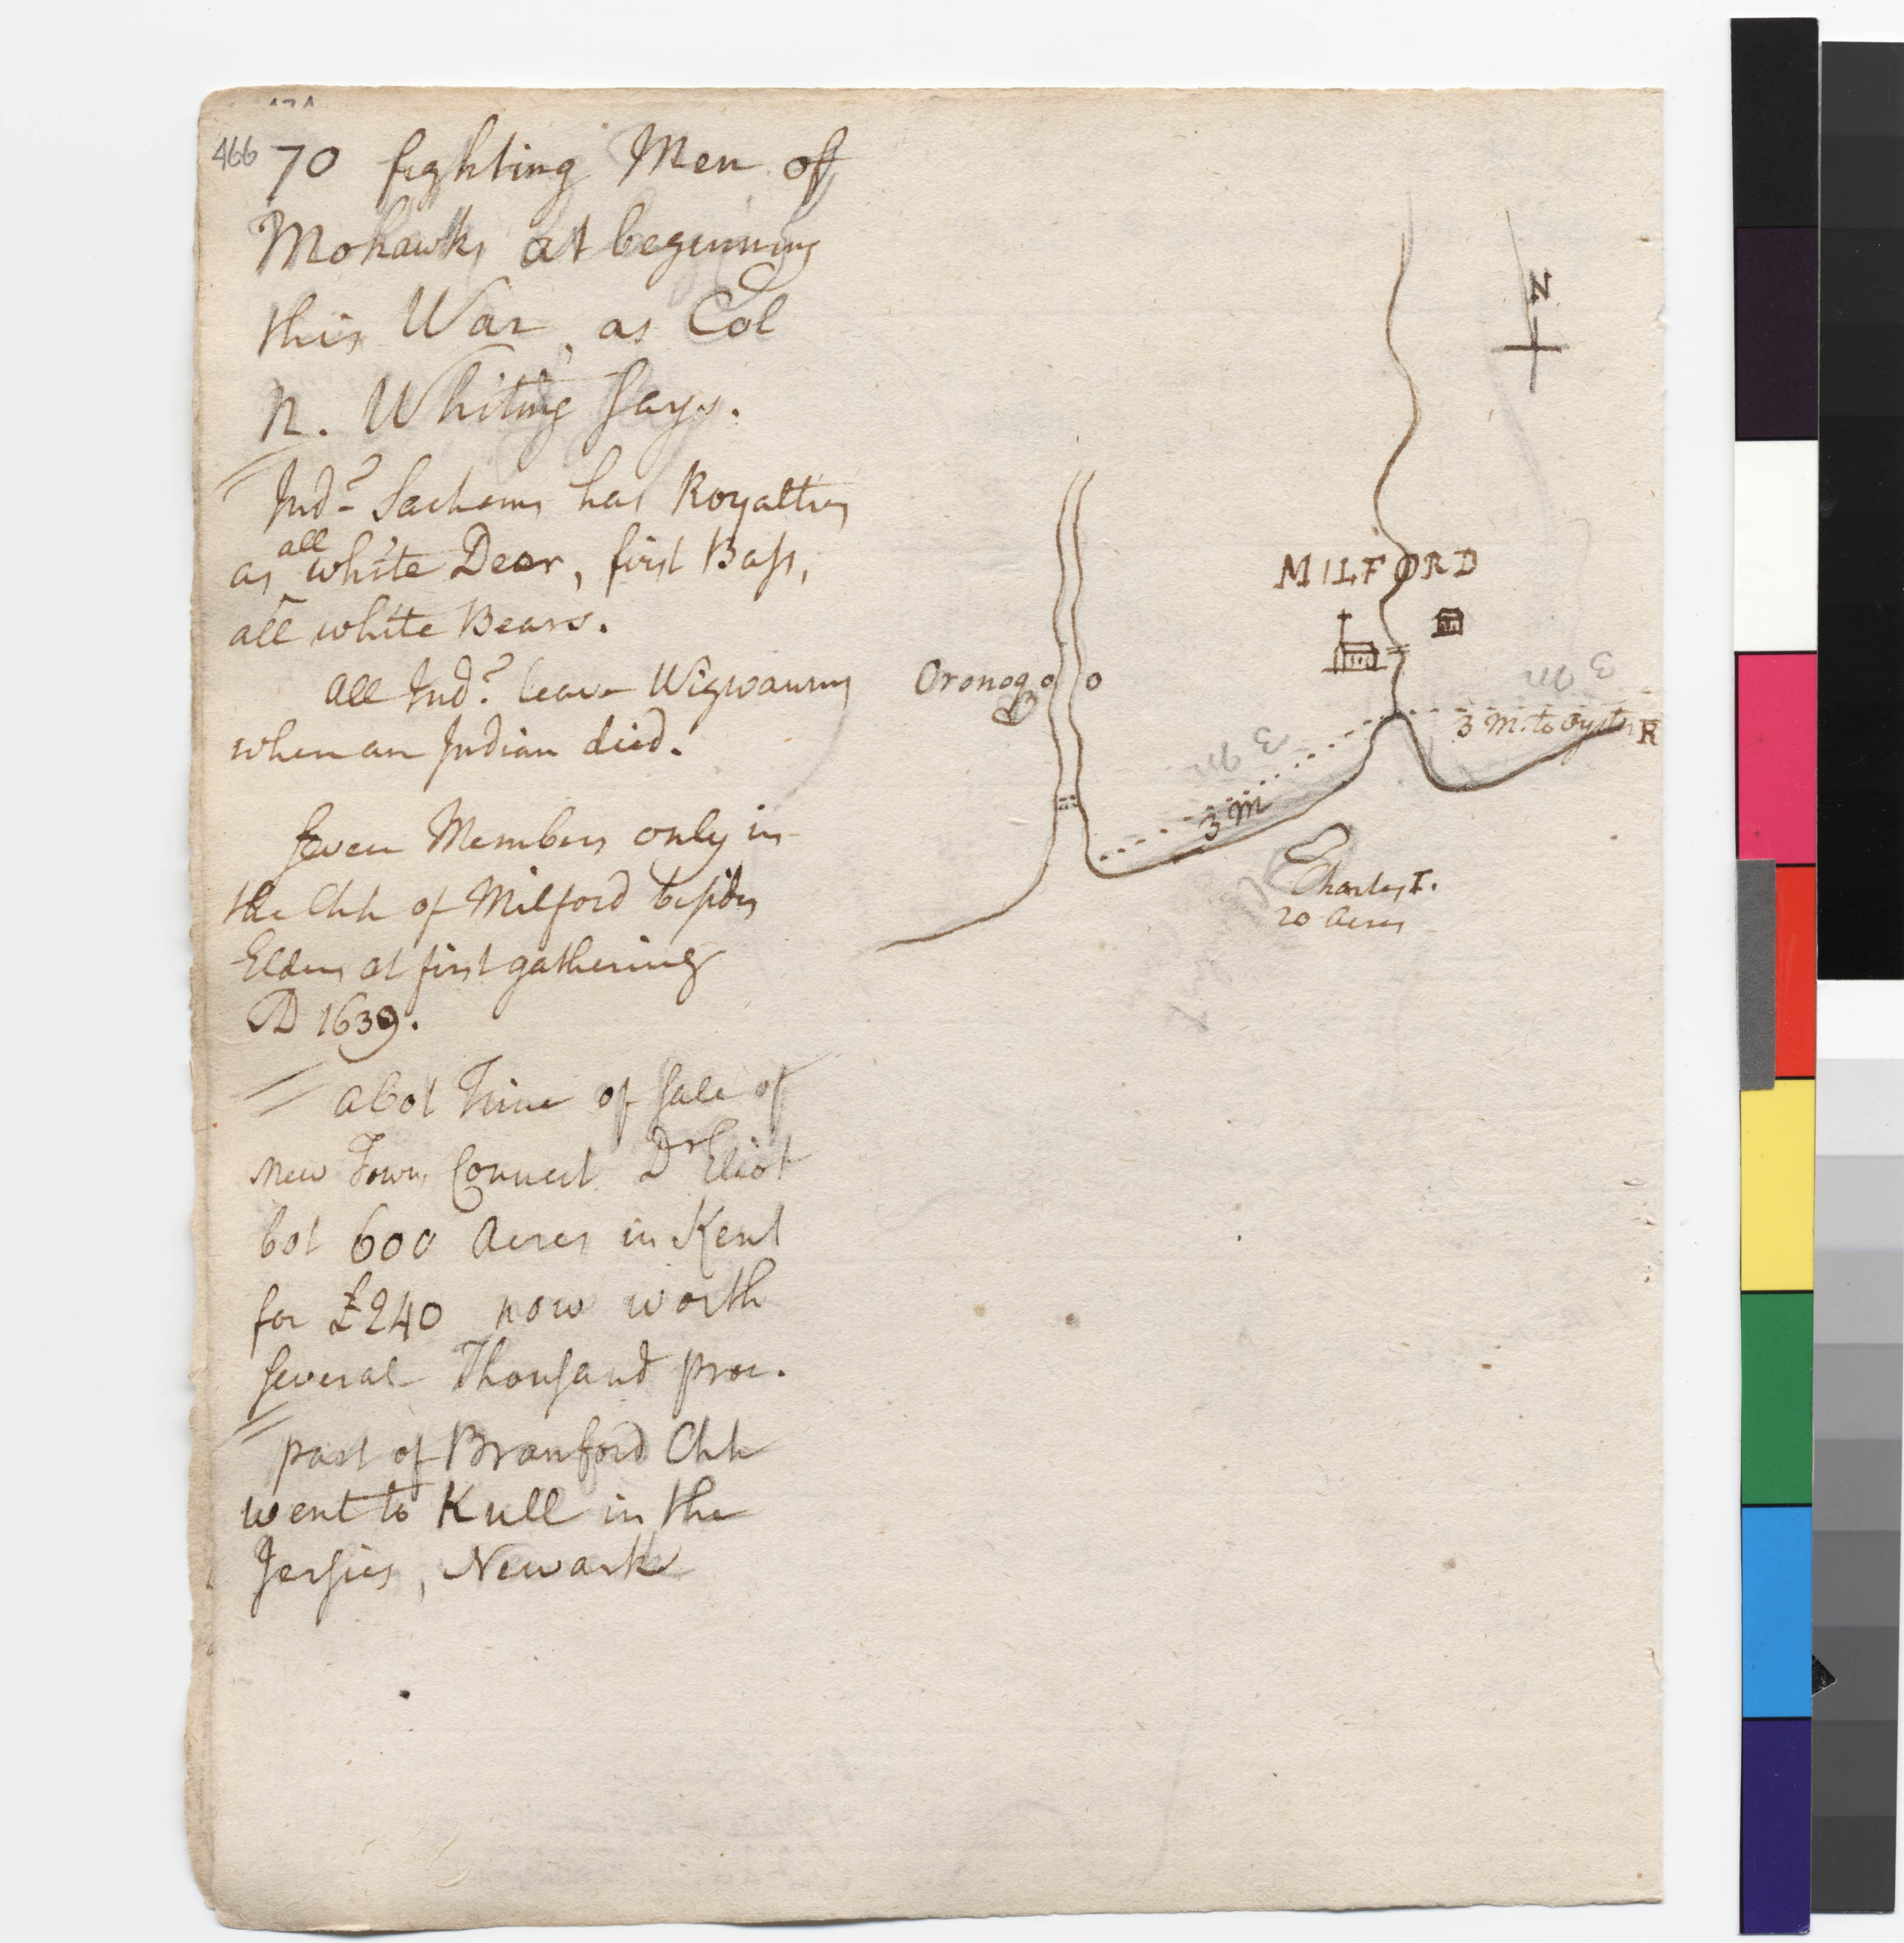 466
70 fighting Men of
Mohawks at beginning
this War, as Col
N. Whiting says.
Indˢ Sachems has Royalties
as all white Deer, first Bass,
all white Bears.
All Indˢ leave Wigwaums
when an Indian died.
Seven Members only in
the Chh of Milford besides
Elders at first gathering
AD 1639.
abot Time of Sale of
New Towns Connect Dr Eliot
bot 600 Acres in Kent
for £240 now worth
several Thousand proc.
part of Branford Chh
went to Kull in the
Jersies, Newark
N
MILFORD
Oronoq
3 M
3 M
3 M. to Oyster R
3 M
Charles I.
20 Acres